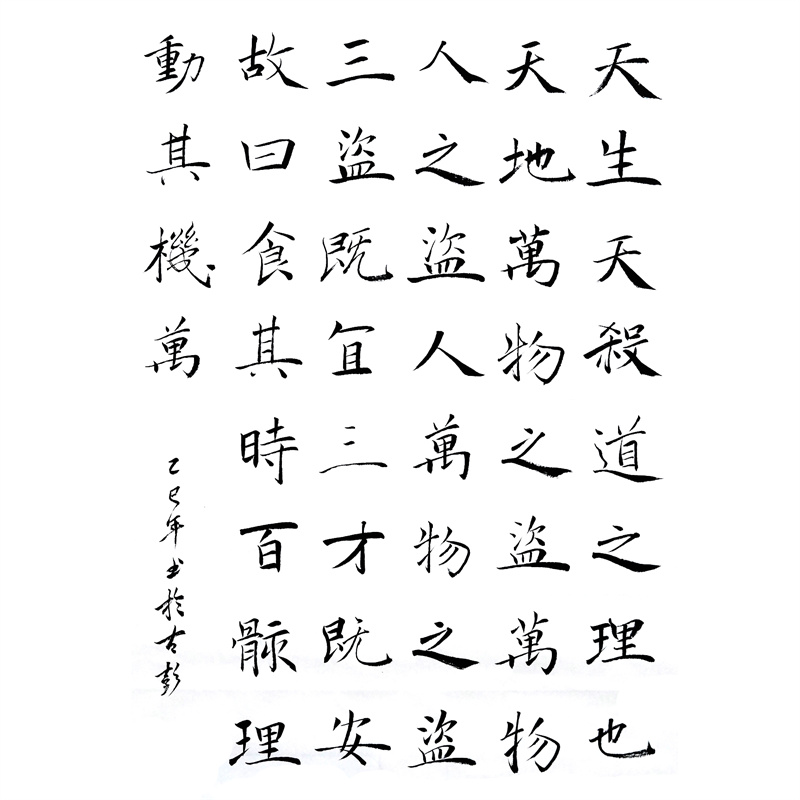 天生天殺道之理也
天地萬物之盜萬物
人之盜人萬物之盜
三盜既宜三才既安
故曰食其時百骸理
動其機萬
乙巳年书於古彭